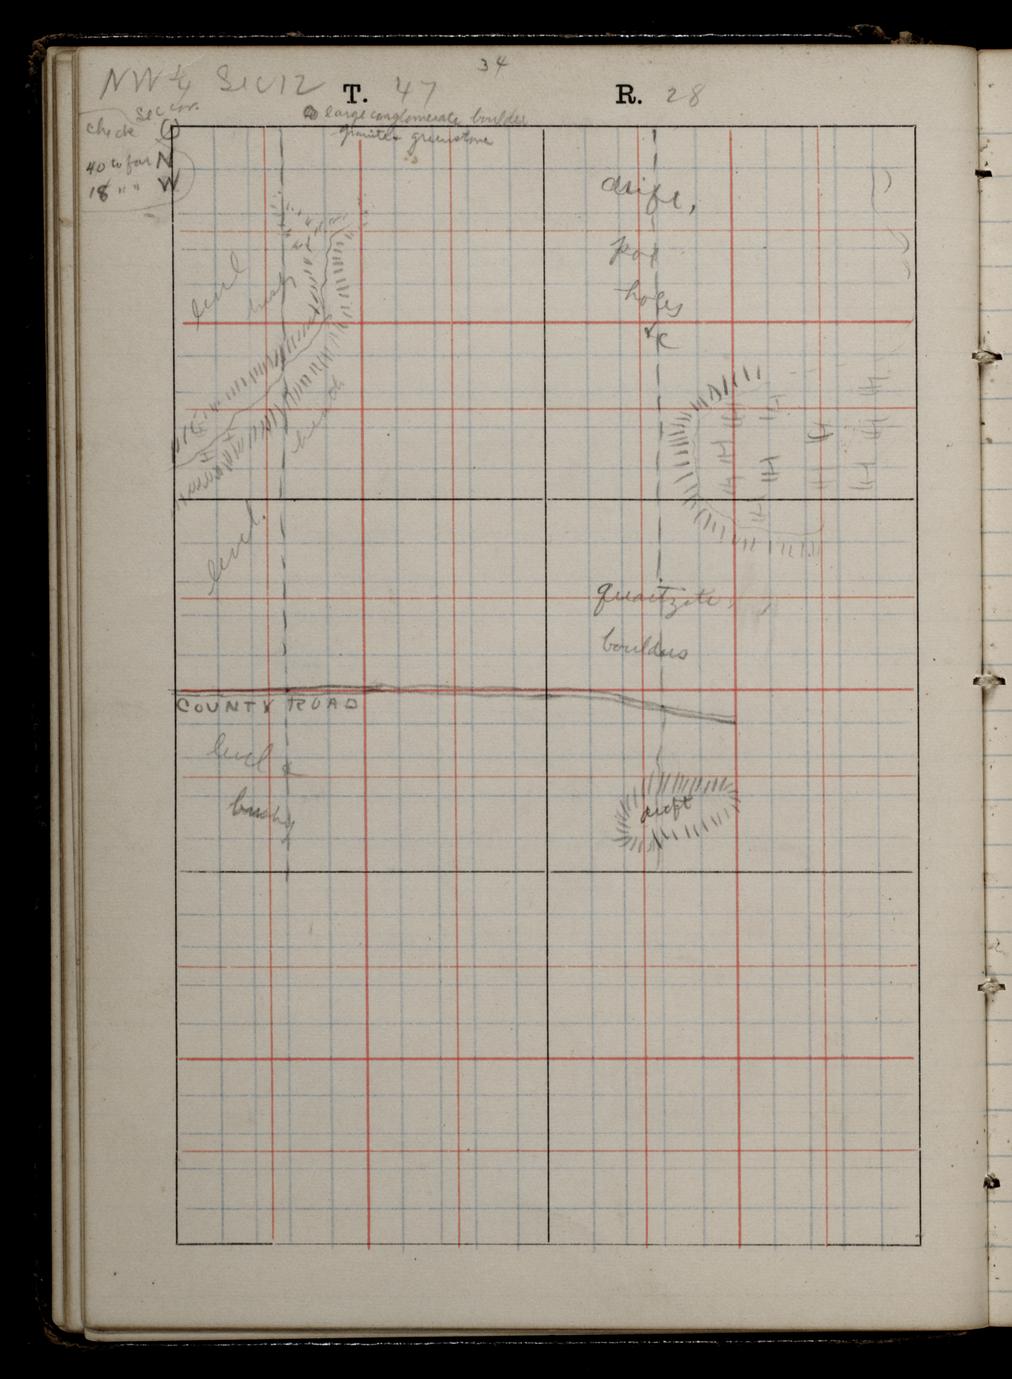 34
NW¼ Sec 12 T. 47 R. 28
check Sec cor.
40 to far N
18 " " W
large conglomerate boulder
granite greenstone
drift,
pot
holes
&c
level
brushy
brush
level.
quartzite
boulders
COUNTY ROAD
level &
brushy
drift